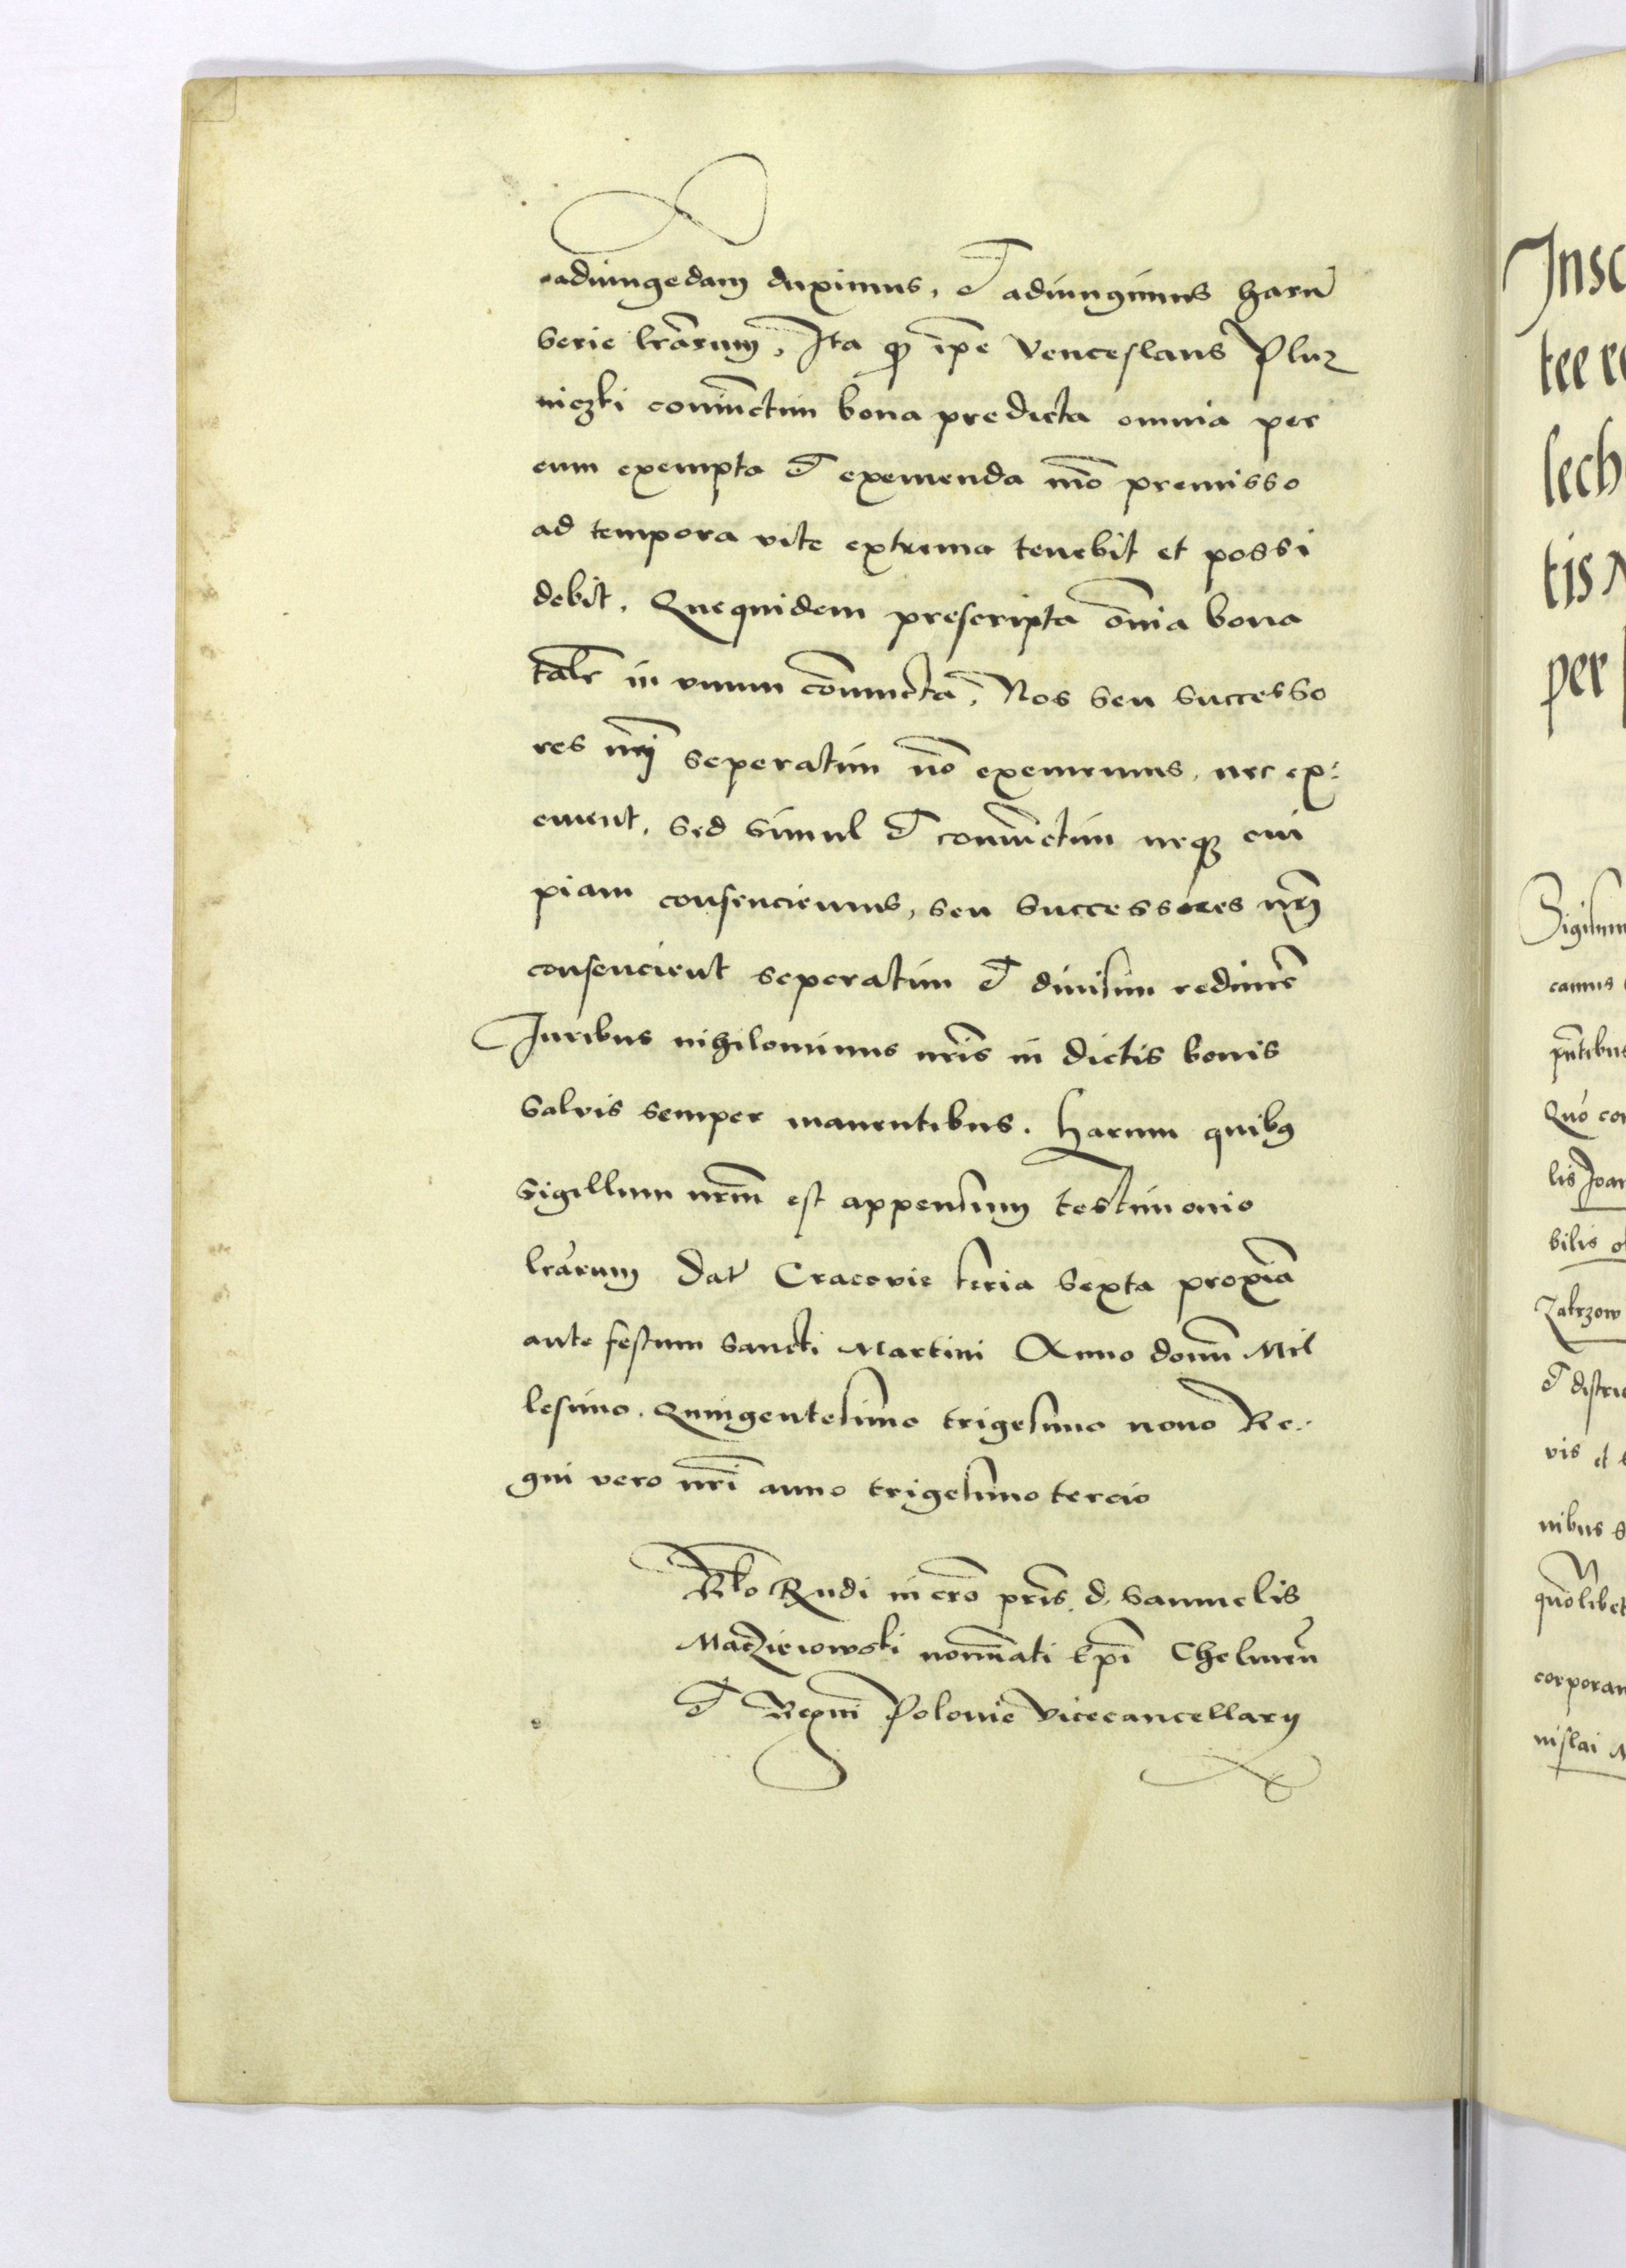 adiungedam duximus, et adiungimus harũ
serie lr̃arum, Ita q̃ ip̃e Venceslaus Pluz
niczki coniũctim bona predicta omnia per
eum exempta et exemenda mõ premisso
ad tempora vite extrema tenebit et possi
debit. Quequidem prescripta õnia bona
talr̃ in vnum cõniuncta, Nos seu successo
res nrĩ seperatim nõ exememus, nec ex-
ement, sed simul et coniũctim neq3 cui
piam consenciemus, seu successores nrĩ
consencient seperatim et diuisim redimẽ
Juribus nihilominus nr̃is in dictis bonis
salvis semper manentibus. Harum quib9
sigillum nrm̃ est appensum testimonio
lr̃arum Dat̃ Cracovie feria sexta proxĩa
ante festum sancti Martini Anno domĩ Mil
lesimo, Quingentesimo trigesimo nono Re-
gni vero nr̃i anno trigesimo tercio
Rlo Rndi in cr̃o pr̃is d. Samuelis
Maczieiowski nomĩati Ep̃i Chelmeñ
et Regni Polonie Vicecancellarij
Insc
tee re
lech
tis
per
Sigism
camus
pñtibus
Quo co
lis Joan
bilis
Zakrzow
et distri
vis et
nibus s
quõlibet
corporan
nislai M